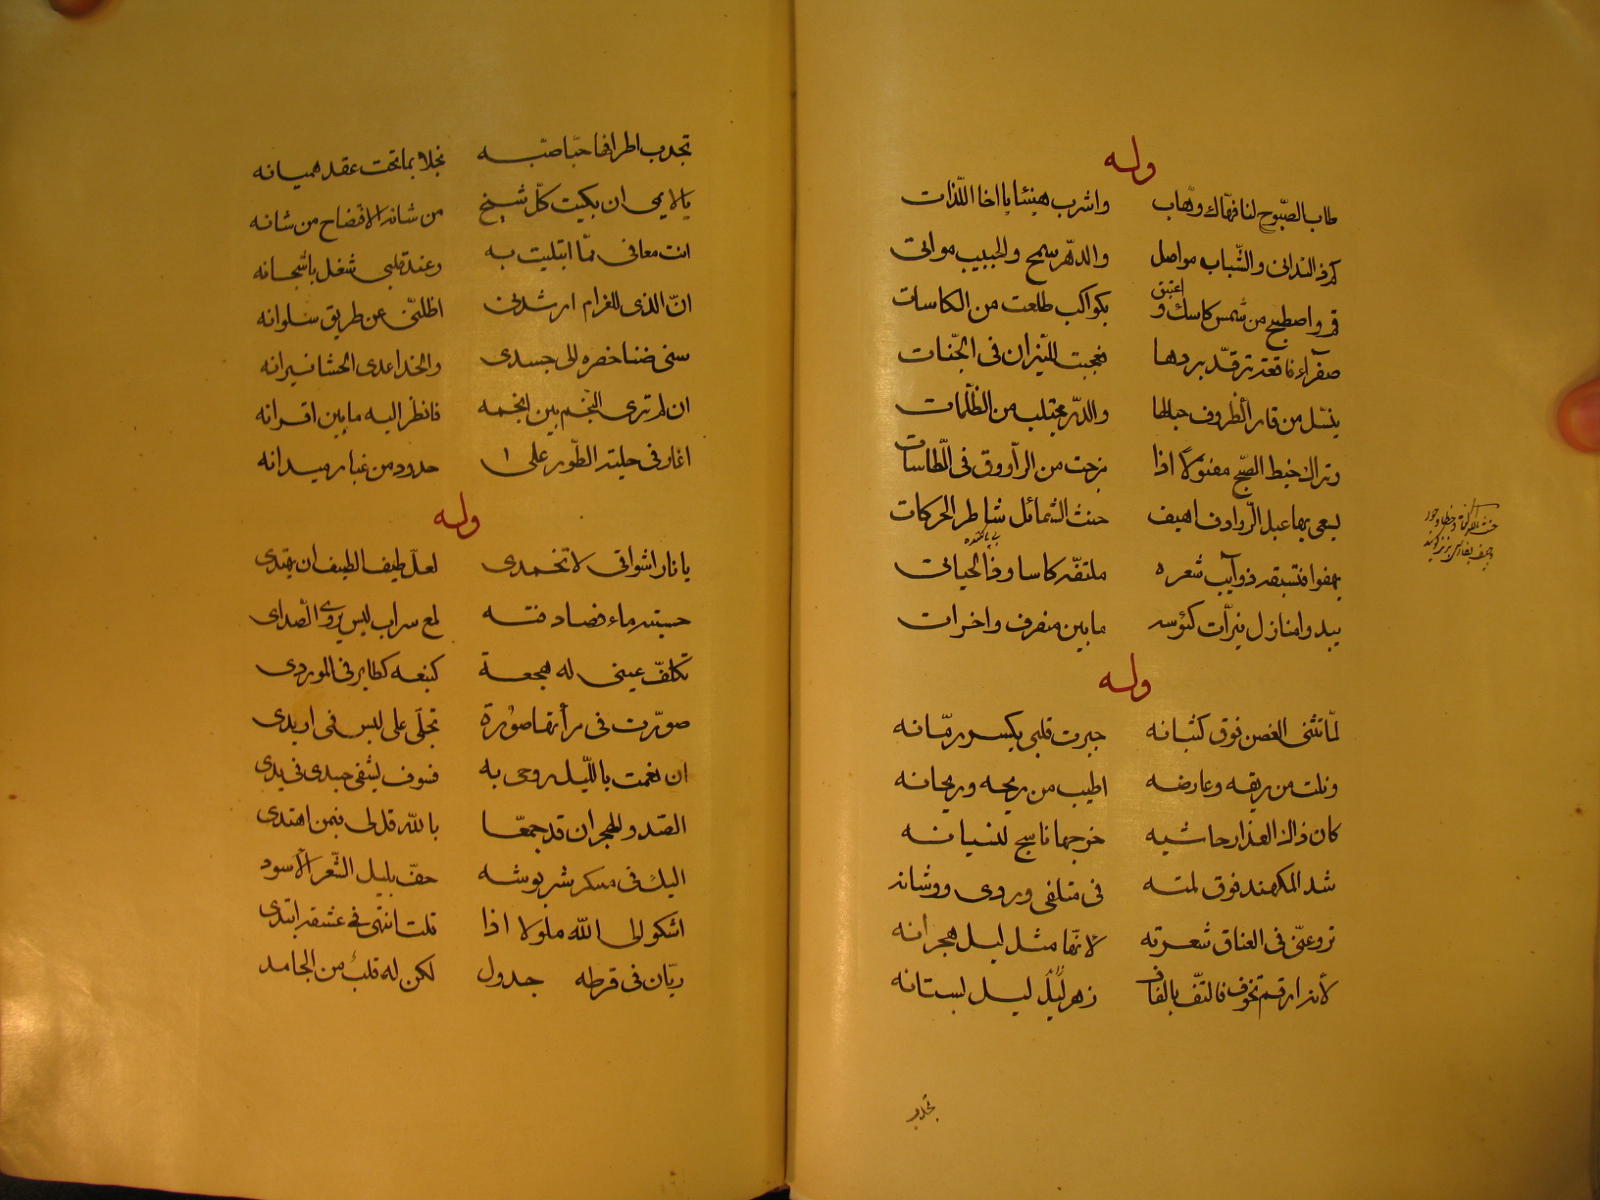 وله
طاب الصّبوح لنا فهاك وهاب واشرب هنيئا يا اخا اللّذات
كم ذا التدانى والشّباب مواصل والدهر سمح والحبيب مواتى
اغتبق
قم واصطبح من شمس كاسك و بكواكب طلعت من الكاسات
صفرآء فاقعة ترقّد بردها فعجبت للنّيران فى الجنّات
ينسل من قار الظروف حبالها والدرّ مجتلب من الظّلمات
وتراك خيط الصّبح مفتولاً اذا مزجت من الرآووق فى الطّاسات
يسعى بها عبل الرّوادف اهيف خنث الشمائل شاطر الحركات
يهفوا فتسبقه ذوآيب شعره ملتفّه كاساود الحيات
يبدو امنازل نيرّات كئوسه مابين منصرف واخرات
وله
لمّا تثنى الغصن فوق كثبانه جبرت قلبى بكسر رمّانه
ونلت من ريقه وعارضه اطيب من ريحه وريحانه
كان ذاك العذار حاشيه خرجها ناسج لنسيانه
شد المكهند فوق لمته فى متلفى وردى ووشانه
تروعنى فى العناق شعرته لانها مثل ليل هجرانه
لانه ارقم تخوف فالتف بالفاف زهر ليل ليل بستانه
تجذب
تجذب اطرافها حبا صبّه بخلا بما تحت عقد هميانه
يالايمى ان بكيت كلّ شيخ من شانه الافضاح من شانه
انت معافى ممّا ابتليت به وعند قلبى شغل باشجانه
انّ الذى للغرام ارشدنى اظلنى عن طريق سلوانه
سنى ضنا خصره الى جسدى والخد اعدى الحشا نيرانه
ان لم ترى النجم بين انجمه فانظر اليه مابين اقرانه
اغار فى حليته الطّور على ١ حدود من غبار ميدانه
وله
يا نار اشواقى لا تخمدى لعلّ طيف الطيف ان يهتدى
حسبته ماء فصادفته لمع سراب ليس يروى الصّداى
تكلّف عينى له هجعة كبنعه كطاير فى الموردى
صوّرت فى مرأتها صورة تجلى على لبس فمى اريدى
ان نعمت بالليل روحى به فسوف يشفى جسدى فى يدى
الصّد والهجران قد جمعّا بالله قل لى فبمن اهتدى
اليك فى مسكر شربوشه حفّ بليل الشّعر الاسود
اشكو الى الله ملولا اذا قلت انتهى فى عشقه ابتدى
ريّان فى قرطه جدول لكن له قلب من الجامد